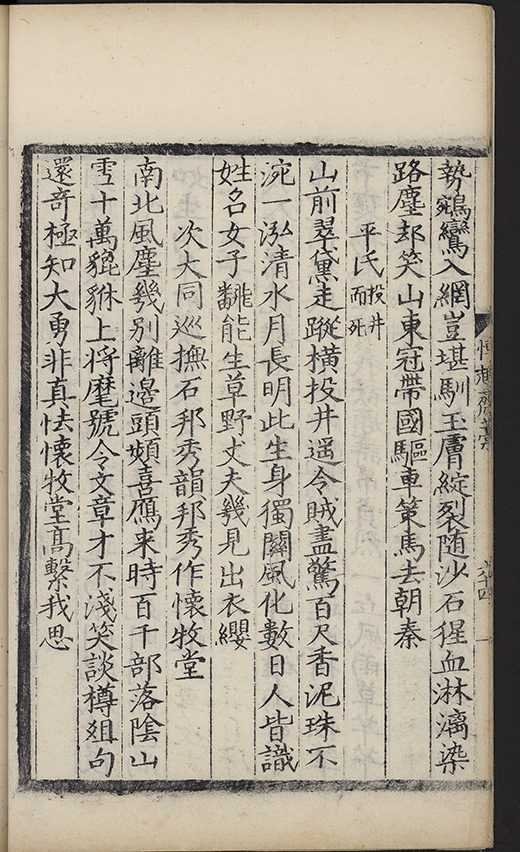 勢鵷鸞入網豈堪馴玉膚綻裂随沙石猩血淋漓染
路塵却笑山東冠帶國驅車策馬去朝秦
平氏投井而死
山前翠黛走蹤橫投井遥令賊盡驚百尺香泥珠不
涴一泓清水月長明此生身獨關風化數日人皆識
姓名女子能生草野丈夫幾見出衣纓
次大同巡撫石邦秀韻邦秀作懷牧堂
南北風塵幾別離邊頭頗喜鴈来時百千部落陰山
雪十萬貔貅上将麾號令文章才不淺笑談樽俎句
還奇極知大勇非真怯懷牧堂高繫我思